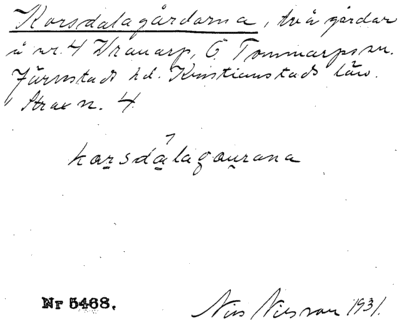 Korsdalagårdarna, två gårdar
å nr. 4 Vranarp, Ö. Tommarps sn.
Järrestads hd. Kristianstads län.
Strax n. 4.
korsdálagaurana
Nr 5468.
Nils Nilsson 1931.